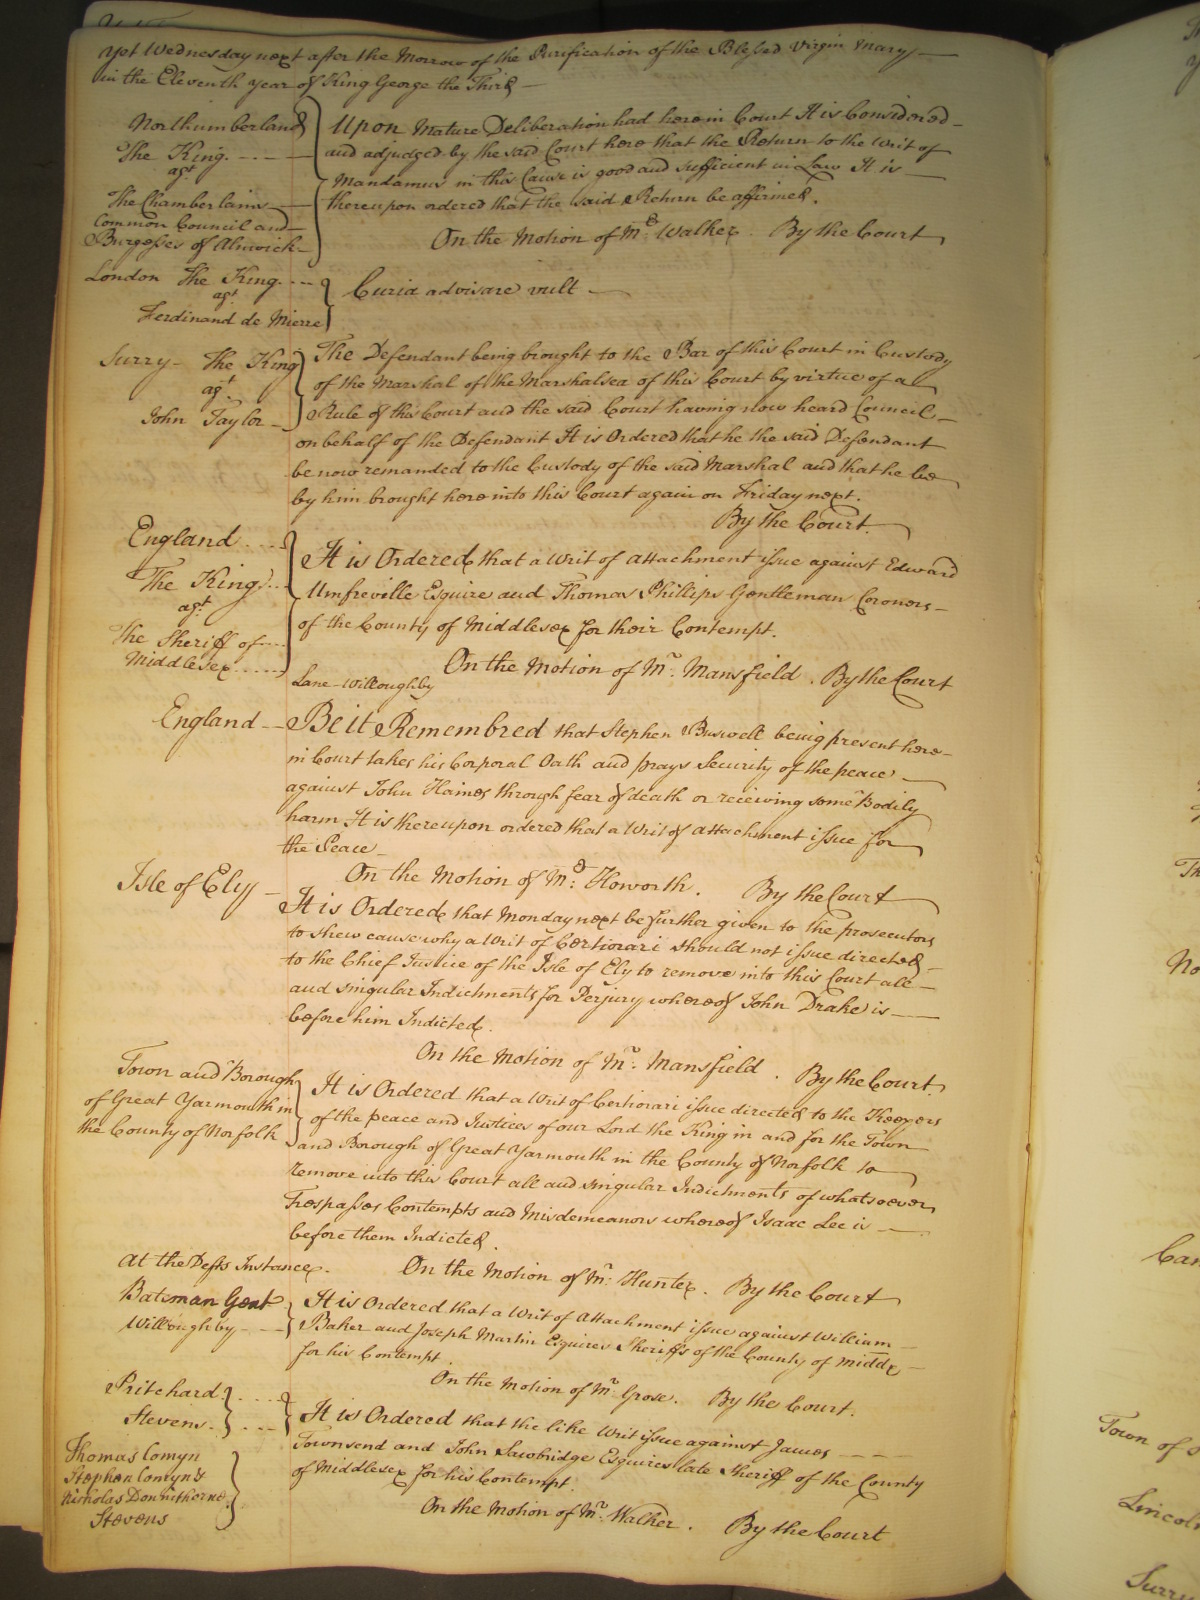 yet Wednesday next after the Morrow of the Purification of the Blessed Virgin Mary
in the Eleventh year of King George the Third
Northumberland
The King
agt
The Chamberlains
Common Council and
Burgesses of Alnwick
Upon Mature Deliberation had here in Court It is Considered
and adjudged by the said Court here that the Return to the Writ of
Mandamus in this Cause is good and sufficient in Law It is
thereupon ordered that the said Return be affirmed.
On the Motion of Mr. Walker. By the Court
London The King
agt
Ferdinand de Mierre
Curia advisare vult
Surry The King
agt
John Taylor
The Defendant being brought to the Bar of this Court in Custody
of the Marshal of the Marshalsea of this Court by virtue of a
Rule of this Court and the said Court having now heard Council
on behalf of the Defendant It is Ordered that he the said Defendant
be now remanded to the Custody of the said Marshal and that he be
by him brought here into this Court again on Friday next.
By the Court
England
The King
agt
The Sheriff of
Middlesex
It is Ordered that a Writ of Attachment issue against Edward
Umfreville Esquire and Thomas Phillips Gentleman Coroners
of the County of Middlesex for their Contempt.
On the Motion of Mr. Mansfield. By the Court
Lane Willoughby
England Be it Remembred that Stephen Buswell being present here
in Court takes his Corporal Oath and prays Security of the peace
against John Haines through fear of death or receiving some Bodily
harm It is thereupon ordered that a Writ of Attachment issue for
the Peace
On the Motion of Mr. Howorth. By the Court
Isle of Ely
It is Ordered that Monday next be further given to the prosecutors
to shew cause why a Writ of Certiorari should not issue directed
to the Chief Justice of the Isle of Ely to remove into this Court all
and singular Indictments for Perjury whereof John Drake is
before him Indicted.
On the Motion of Mr. Mansfield. By the Court
Town and Borough
of Great Yarmouth in
the County of Norfolk
It is Ordered that a Writ of Certiorari issue directed to the Keepers
of the peace and Justices of our Lord the King in and for the Town
and Borough of Great Yarmouth in the County of Norfolk to
remove into this Court all and singular Indictments of whatsoever
Trespasses Contempts and Misdemeanors whereof Isaac Lee is
before them Indicted.
At the Defts Instance. On the Motion of Mr. Hunter. By the Court
Bateman Gent
Willoughby
It is Ordered that a Writ of Attachment issue against William
Baker and Joseph Martin Esquires Sheriffs of the County of Middx
for his Contempt.
On the Motion of Mr. Grose. By the Court.
Pritchard
Stevens
Thomas Comyn
Stephen Comyn &
Nicholas Donnithorne
Stevens
It is Ordered that the like Writ issue against James
Townsend and John Sawbridge Esquires late Sheriff of the County
of Middlesex for his Contempt.
On the Motion of Mr. Walker. By the Court
Th
No
Can
Town of
Lincoln
Surry